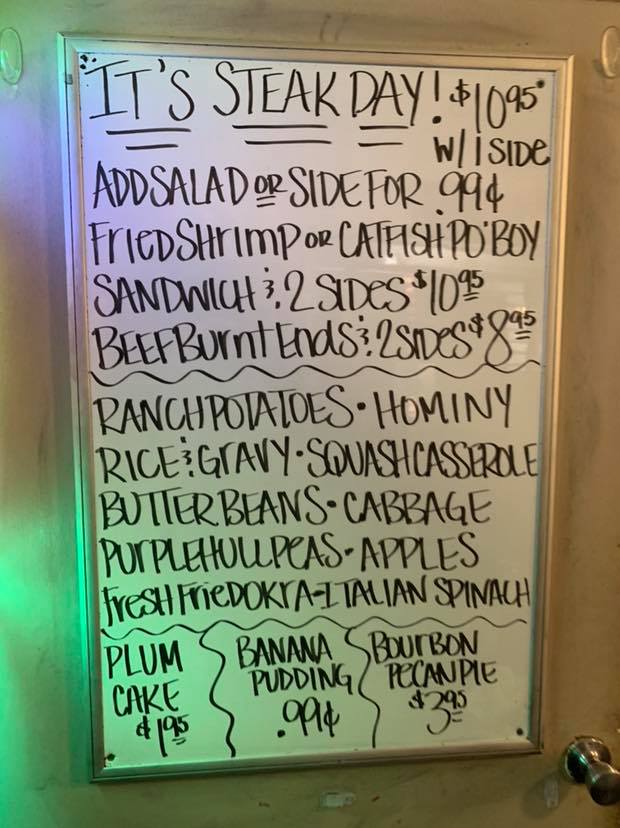 IT'S STEAK DAY! $10.95
W/ 1 SIDE
ADD SALAD OR SIDE FOR .99¢
FRIED SHRIMP OR CATFISH PO'BOY
SANDWICH & 2 SIDES $10.95
BEEF BURNT ENDS & 2 SIDES $8.95
RANCH POTATOES • HOMINY
RICE & GRAVY • SQUASH CASSEROLE
BUTTER BEANS • CABBAGE
PURPLE HULL PEAS • APPLES
FRESH FRIED OKRA - ITALIAN SPINACH
PLUM
CAKE
$1.95
BANANA
PUDDING
.99¢
BOURBON
PECAN PIE
$3.95